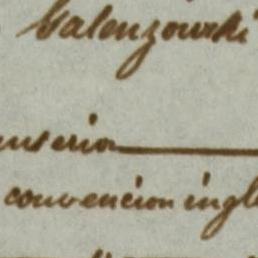 Galenzowski
anserior
convencion ingl